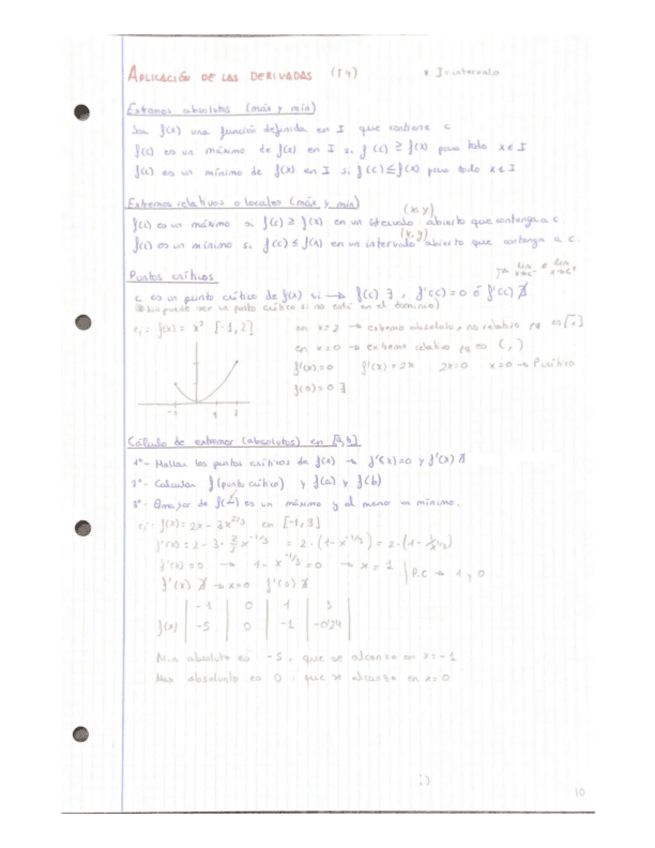 APLICACIÓN DE LAS DERIVADAS (T4) * I=intervalo
Extremos absolutos (máx y mín)
Sea f(x) una función definida en I que contiene c
f(c) es un máximo de f(x) en I si f(c) ≥ f(x) para todo x ∈ I
f(c) es un mínimo de f(x) en I si f(c) ≤ f(x) para todo x ∈ I
Extremos relativos o locales (máx y mín)
(x,y)
f(c) es un máximo si f(c) ≥ f(x) en un intervalo abierto que contenga a c.
(x,y)
f(c) es un mínimo si f(c) ≤ f(x) en un intervalo abierto que contenga a c.
Puntos críticos
c es un punto crítico de f(x) si → f(c) ∃, f'(c)=0 ó f'(c) ∄
no puede ser un punto crítico si no está en el dominio)
ej: f(x) = x² [-1,2]
en x=2 → extremo absoluto, no relativo pq es [,]
en x=0 → extremo relativo pq es (,)
f'(x)=0 f'(x)=2x 2x=0 x=0 → P.crítico
f(0)=0 ∃
-1 1 2
Cálculo de extremos (absolutos) en [a,b]
1º- Hallar los puntos críticos de f(x) → f'(x)=0 y f'(x) ∄
2º- Calcular f(punto crítico) y f(a) y f(b)
3º- El mayor de f( ) es un máximo y el menor un mínimo.
ej: f(x) = 2x - 3x^2/3 en [-1,3]
f'(x) = 2 - 3 · 2/3 x^-1/3 = 2·(1-x^-1/3) = 2·(1- 1/x^1/3)
f'(x)=0 → 1-x^-1/3=0 → x=1 | P.C → 1 y 0
f'(x) ∄ → x=0 f'(0) ∄
| -1 | 0 | 1 | 3 |
f(x) | -5 | 0 | -1 | -0'24 |
Min absoluto es -5, que se alcanza en x=-1
Max absoluto es 0, que se alcanza en x=0
:)
10